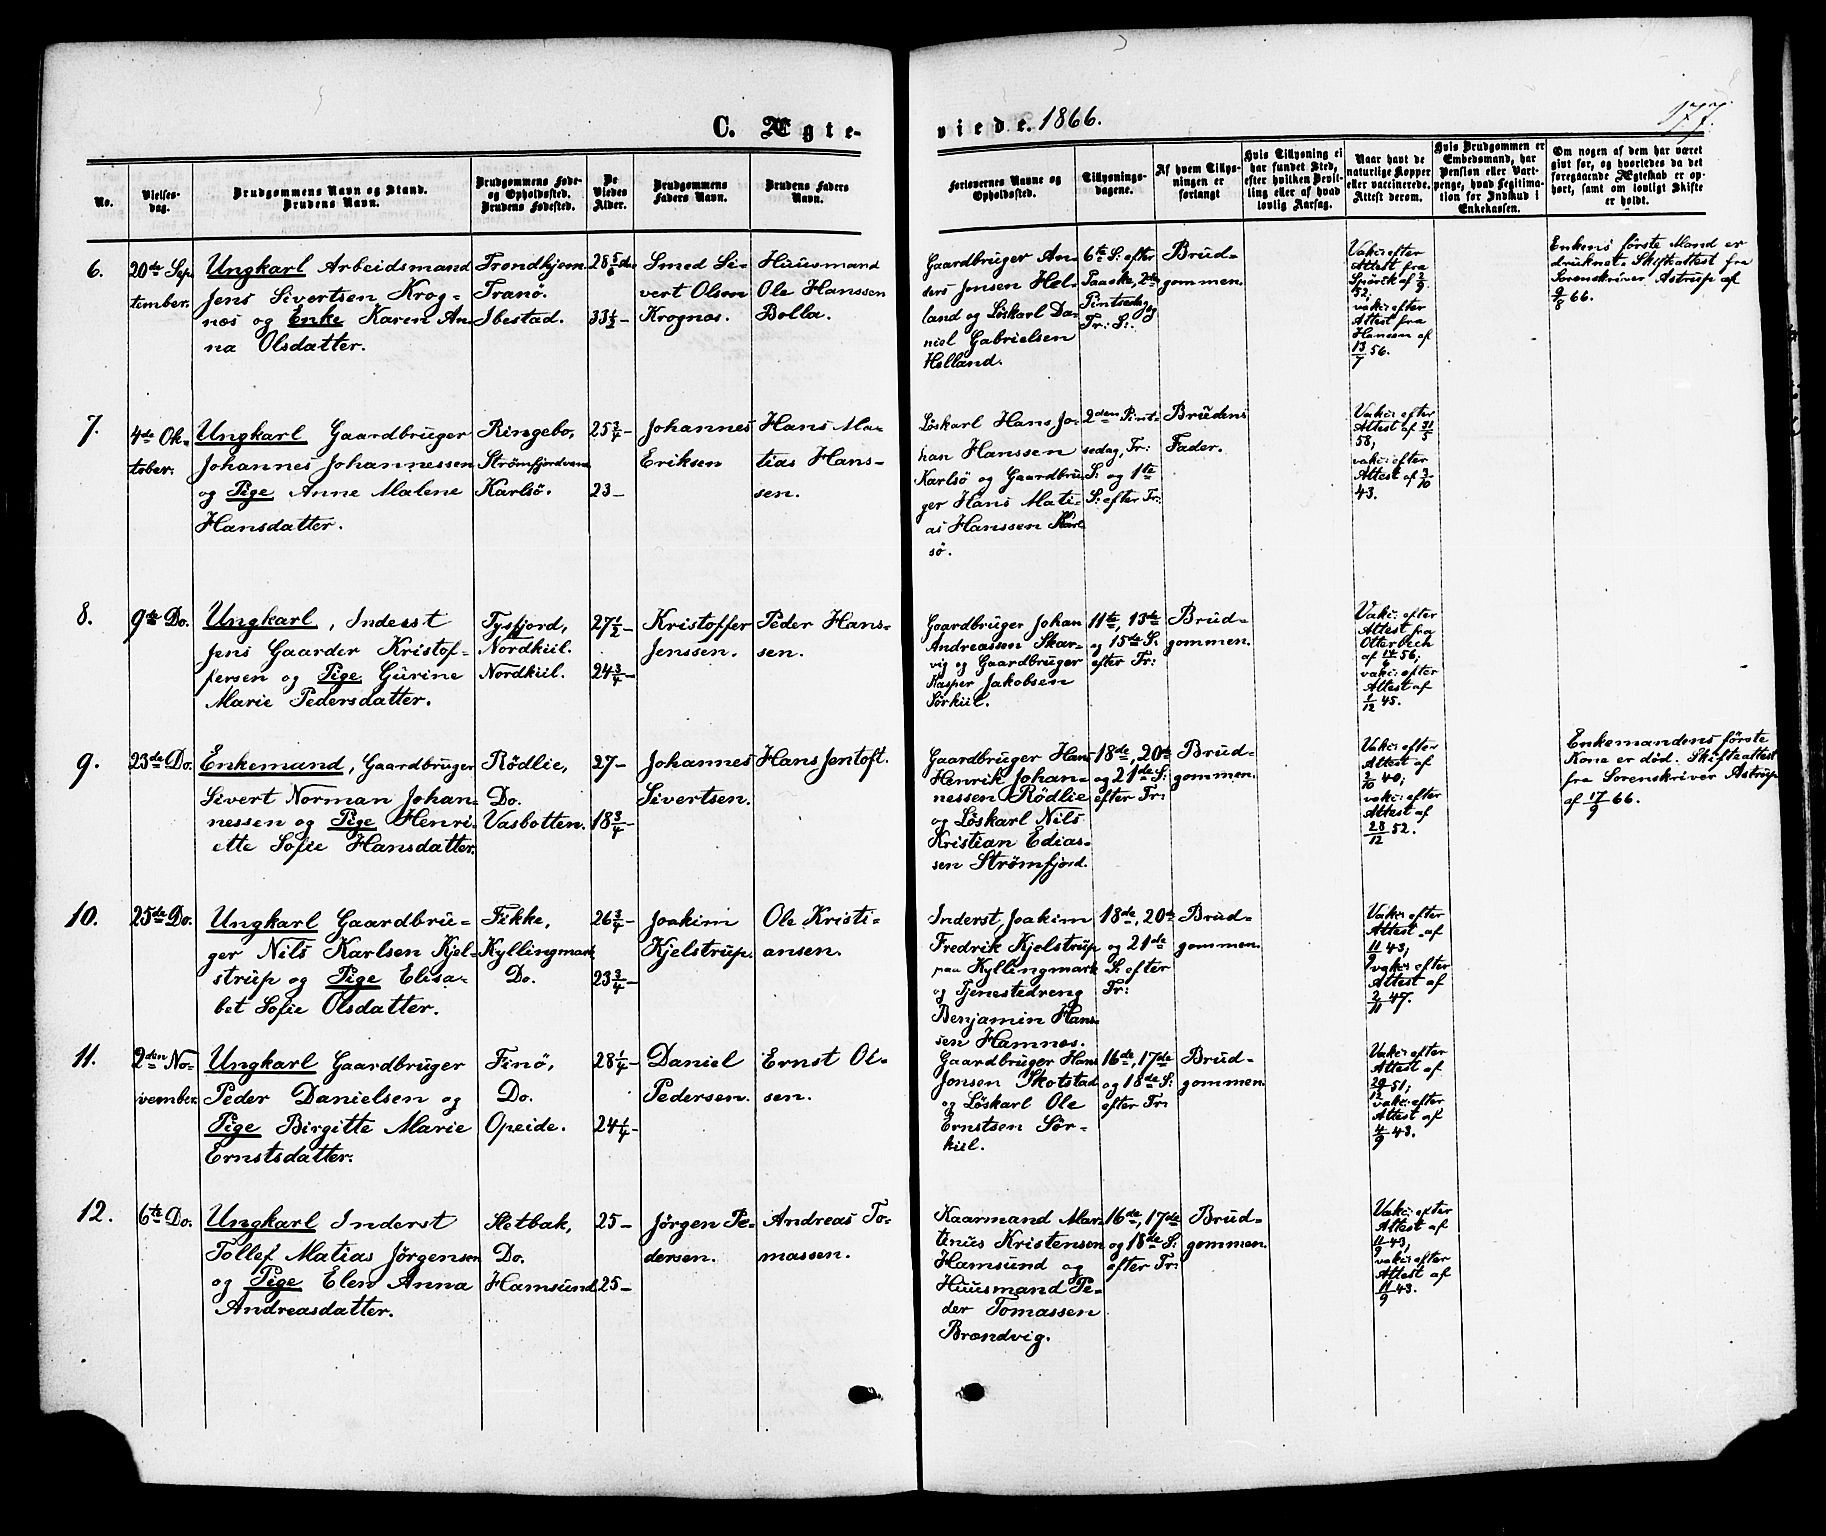 C. Ægte-
viede. 1866.
177.
No.
Vielses-
dag.
Brudgommens Navn og Stand.
Brudens Navn.
Brudgommens Føde-
og Opholdssted.
Brudens Fødested.
De
Viedes
Alder.
Brudgommens
Faders Navn.
Brudens Faders
Navn.
Forlovernes Navne og
Opholdssted.
Tillysnings-
dagene.
Af hvem Tillys-
ningen er
forlangt
Hvis Tillysning ei
har fundet Sted,
efter hvilken Bevil-
ling eller af hvad
lovlig Aarsag.
Naar havt de
naturlige Kopper
eller vaccinerede.
Attest derom.
Hvis Brudgommen er
Embedsmand, har
Pension eller Vart-
penge, hvad Legitima-
tion for Indskud i
Enkekassen.
Om nogen af dem har været
givt før, og hvorledes da det
foregaaende Ægteskab er op-
hørt, samt om lovligt Skifte
er holdt.
6.
20de Sep-
tember.
Ungkarl Arbeidsmand
Jens Sivertsen Krog-
næs og Enke Karen An-
na Olsdatter.
Trondhjem
Tranö.
Ibestad.
28 5/6 de
33 1/2 -
Smed Si-
vert Olsen
Krognæs.
Huusmand
Ole Hanssen
Bolla.
Gaardbruger An-
ders Jensen Hel-
land og Löskarl Da-
niel Gabrielsen
Helland.
6te S: efter
Paaske, 2de
Pintsedag og
Tr: S:.
Brud-
gommen.
Vak: efter
Attest fra
Spörck af 2/9
52;
vak: efter
Attest fra
Hanssen af
13/7 56.
Enkens første Mand er
druknet. Skifteattest fra
Sorenskriver Astrup af
9/8 66.
7.
4de Ok-
tober.
Ungkarl Gaardbruger
Johannes Johannessen
og Pige Anne Malene
Hansdatter.
Ringebo,
Strømfjordvand
Karlsö.
25 3/4 -
23 -
Johannes
Eriksen
Hans Ma-
tias Hans-
sen.
Löskarl Hans Jo-
han Hanssen
Karlsö og Gaardbru-
ger Hans Mati-
as Hanssen Karl-
sö.
2den Pint-
sedag, Tr:
S: og 1te
S: efter Tr:
Brudens
Fader.
Vak: efter
Attest af 31/5
58,
vak: efter
Attest af 3/10
43.
8.
9de Do.
Ungkarl, Inderst
Jens Gaarder Kristof-
fersen og Pige Gurine
Marie Pedersdatter.
Tysfjord,
Nordkiil.
Nordkiil.
27 1/2 -
24 3/4 -
Kristoffer
Jenssen.
Peder Hans-
sen.
Gaardbruger Johan
Andreassen Skar-
vig og Gaardbruger
Kasper Jakobsen
Sörkiil.
11te, 13de
og 15de S:
efter Tr:
Brud-
gommen.
Vak: efter
Attest fra
Otterbech
af 14/6 56;
vak: efter
Attest af
1/12 45.
9.
23de Do.
Enkemand, Gaardbruger
Sivert Norman Johan-
nessen og Pige Henri-
ette Sofie Hansdatter.
Rödlie,
Do.
Vasbotten.
27 -
18 3/4 -
Johannes
Sivertsen.
Hans Jentoft.
Gaardbruger Hans
Henrik Johan-
nessen Rödlie
og Löskarl Nils
Kristian Edias-
sen Strømfjord.
18de, 20de
og 21de S:
efter Tr:
Brud-
gommen.
Vak: efter
Attest af
2/10 40;
vak: efter
Attest af
28/12 52.
Enkemandens første
Kone er död. Skifteattest
fra Sorenskriver Astrup
af 17/9 66.
10.
25de Do.
Ungkarl Gaardbru-
ger Nils Karlsen Kjel-
strup og Pige Elisa-
bet Sofie Olsdatter.
Fikke,
Kyllingmark
Do.
26 3/4 -
23 3/4 -
Joakim
Kjelstrup.
Ole Kristi-
ansen.
Inderst Joakim
Fredrik Kjelstrup
paa Kyllingmark
og Tjenestedreng
Benjamin Hans-
sen Hamnes.
18de, 20de
og 21de
S: efter
Tr:
Brud-
gommen.
Vak: efter
Attest af
11/9 43,
vak: efter
Attest af
2/11 47.
11.
2den No-
vember.
Ungkarl Gaardbruger
Peder Danielsen og
Pige Birgitte Marie
Ernstsdatter.
Finö,
Do.
Opeide.
28 1/4 -
24 1/4 -
Daniel
Pedersen.
Ernst Ol-
sen.
Gaardbruger Hans
Jonsen Skotstad
og Löskarl Ole
Ernstsen Sör-
kiil.
16de, 17de
og 18de S:
efter Tr:
Brud-
gommen.
Vak: efter
Attest af
29/12 51;
vak: efter
Attest af
4/9 43.
12.
6te Do.
Ungkarl Inderst
Tollef Matias Jørgensen
og Pige Elen Anna
Andreasdatter.
Sletbak,
Do.
Hamsund.
25 -
25 -
Jørgen Pe-
dersen.
Andreas To-
massen.
Kaarmand Mar-
tinus Kristensen
Hamsund og
Huusmand Pe-
der Tomassen
Brændvig.
16de, 17de
og 18de S:
efter Tr:
Brud-
gommen.
Vak: efter
Attest af
11/9 43,
vak: efter
Attest af
11/9 43.